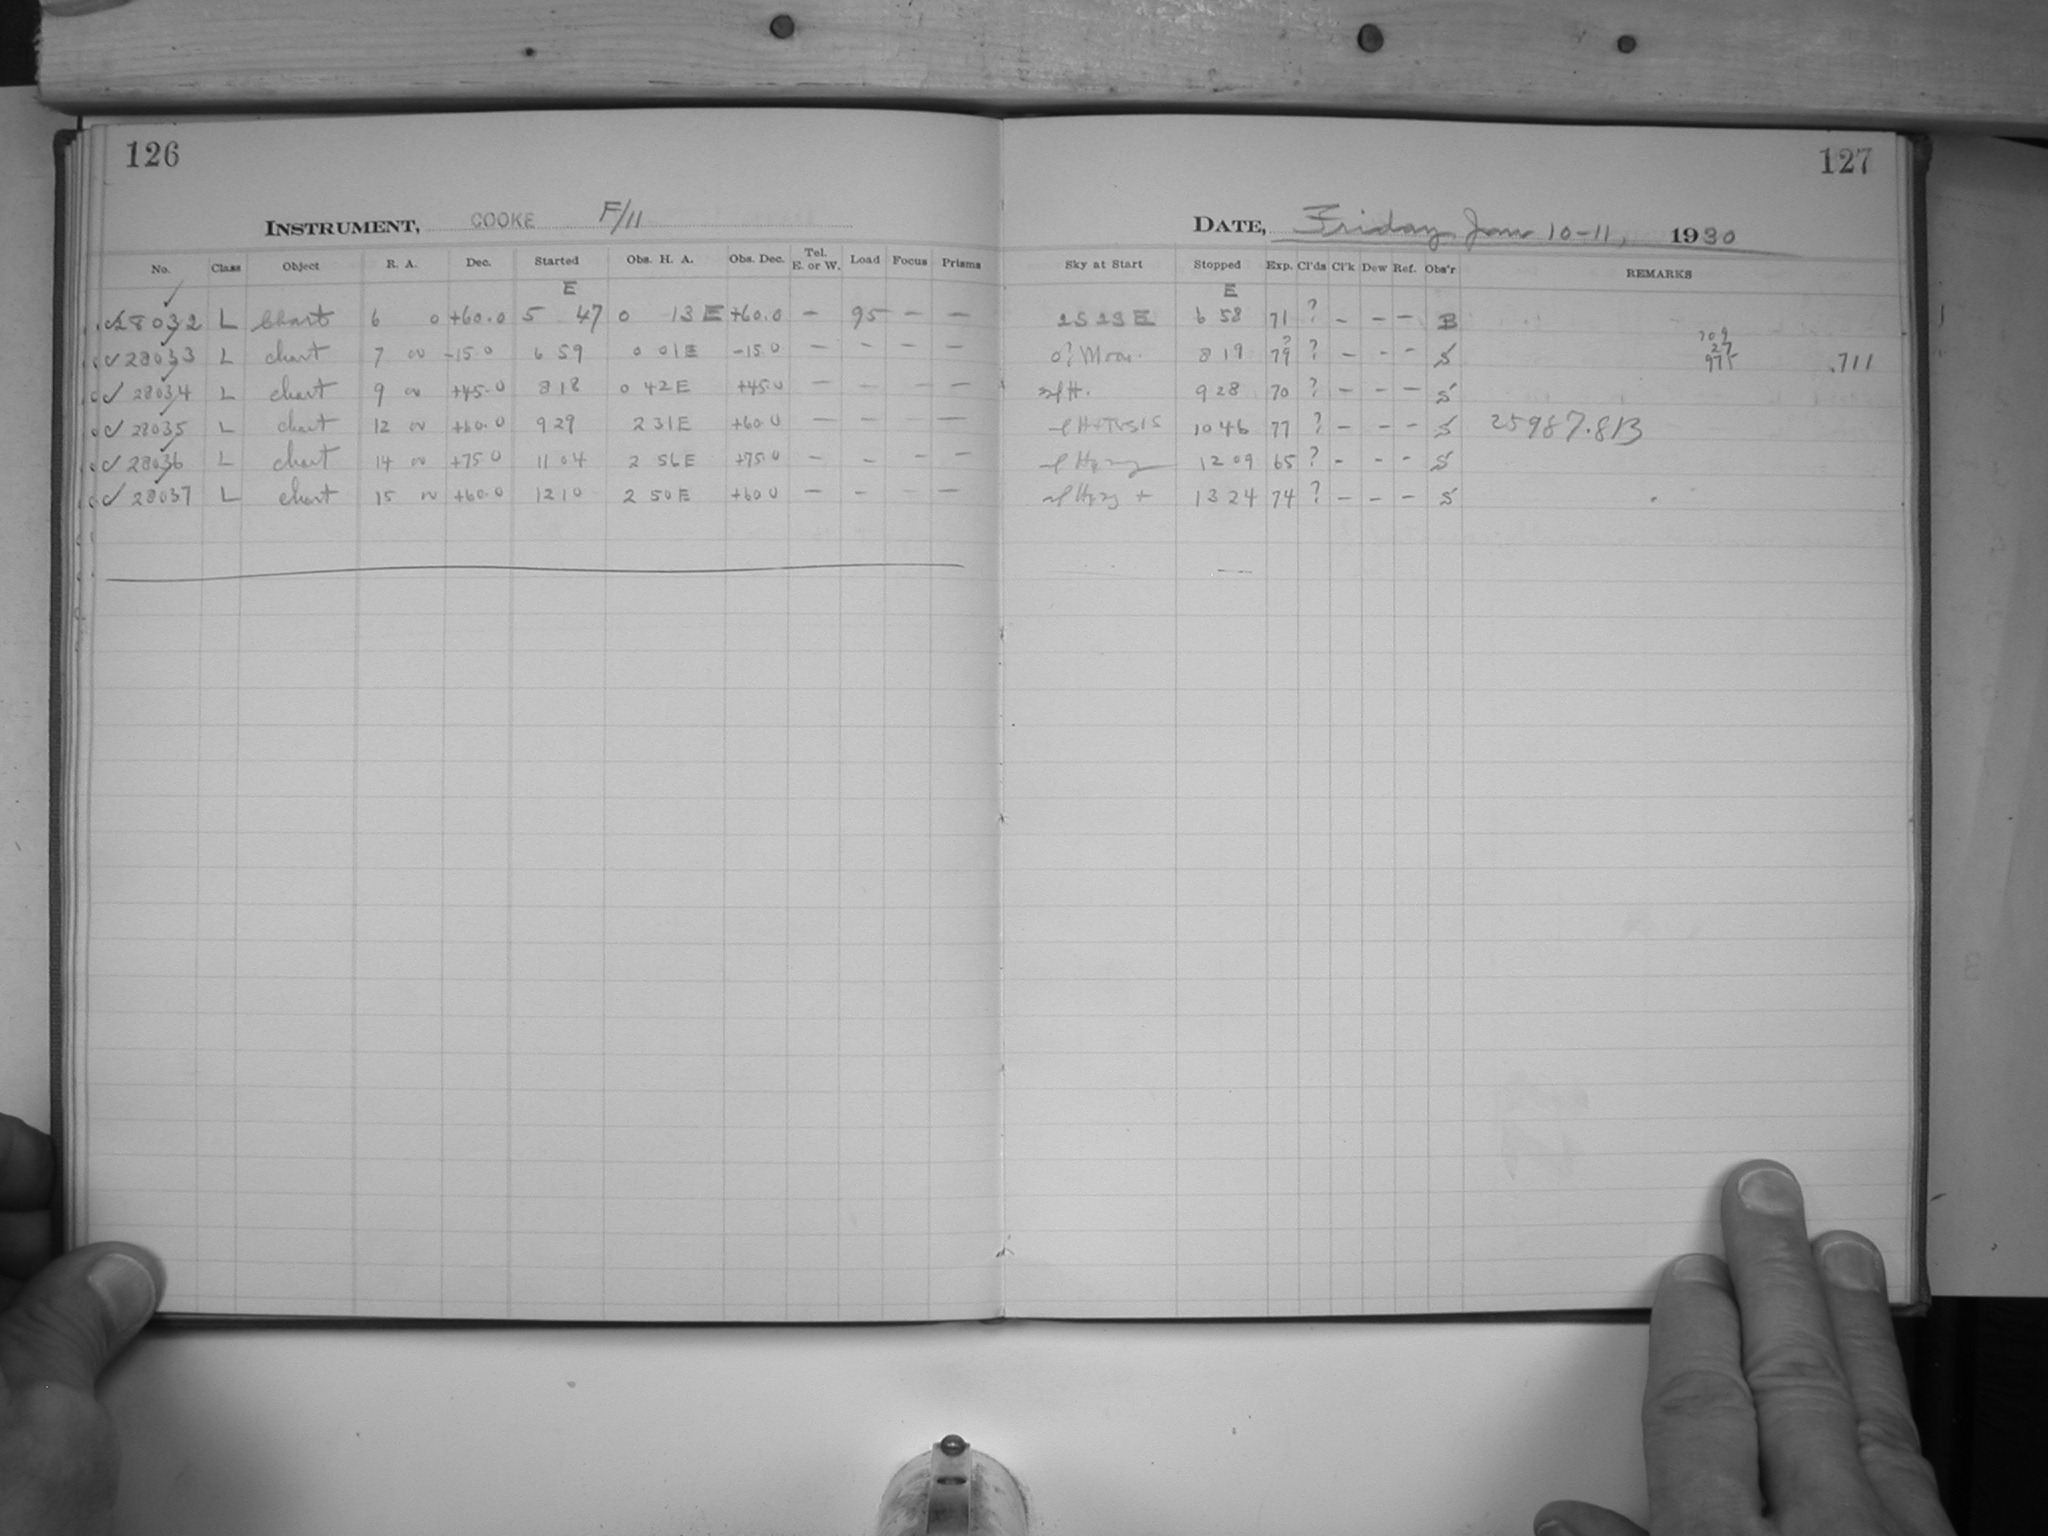 126
127
INSTRUMENT, COOKE F/11
DATE, Friday Jan 10-11, 1930
No. Class Object R. A. Dec. Started Obs. H. A. Obs. Dec. Tel. E. or W. Load Focus Prisms Sky at Start Stopped Exp. Cl'ds Cl'k Dew Ref. Obs'r REMARKS
E E
✓28032 L Chart 6 0 +60.0 5 47 0 13 E +60.0 - 95 - - 6 58 71 ? - - - B
✓ 28033 L chart 7 00 -15 0 6 59 0 01 E -15 0 - - - - 8 19 79 ? ? - - - S .711
✓ 28034 L chart 9 00 +45.0 8 18 0 42 E +45.0 - - - - 9 28 70 ? - - - S
✓ 28035 L chart 12 00 +60.0 9 29 2 31 E +60.0 - - - - 10 46 77 ? - - - S 25987.813
✓ 28036 L chart 14 00 +75 0 11 04 2 56 E +75.0 - - - - 12 09 65 ? - - - S
✓ 28037 L chart 15 00 +60.0 12 10 2 50 E +60 0 - - - - 13 24 74 ? - - - S